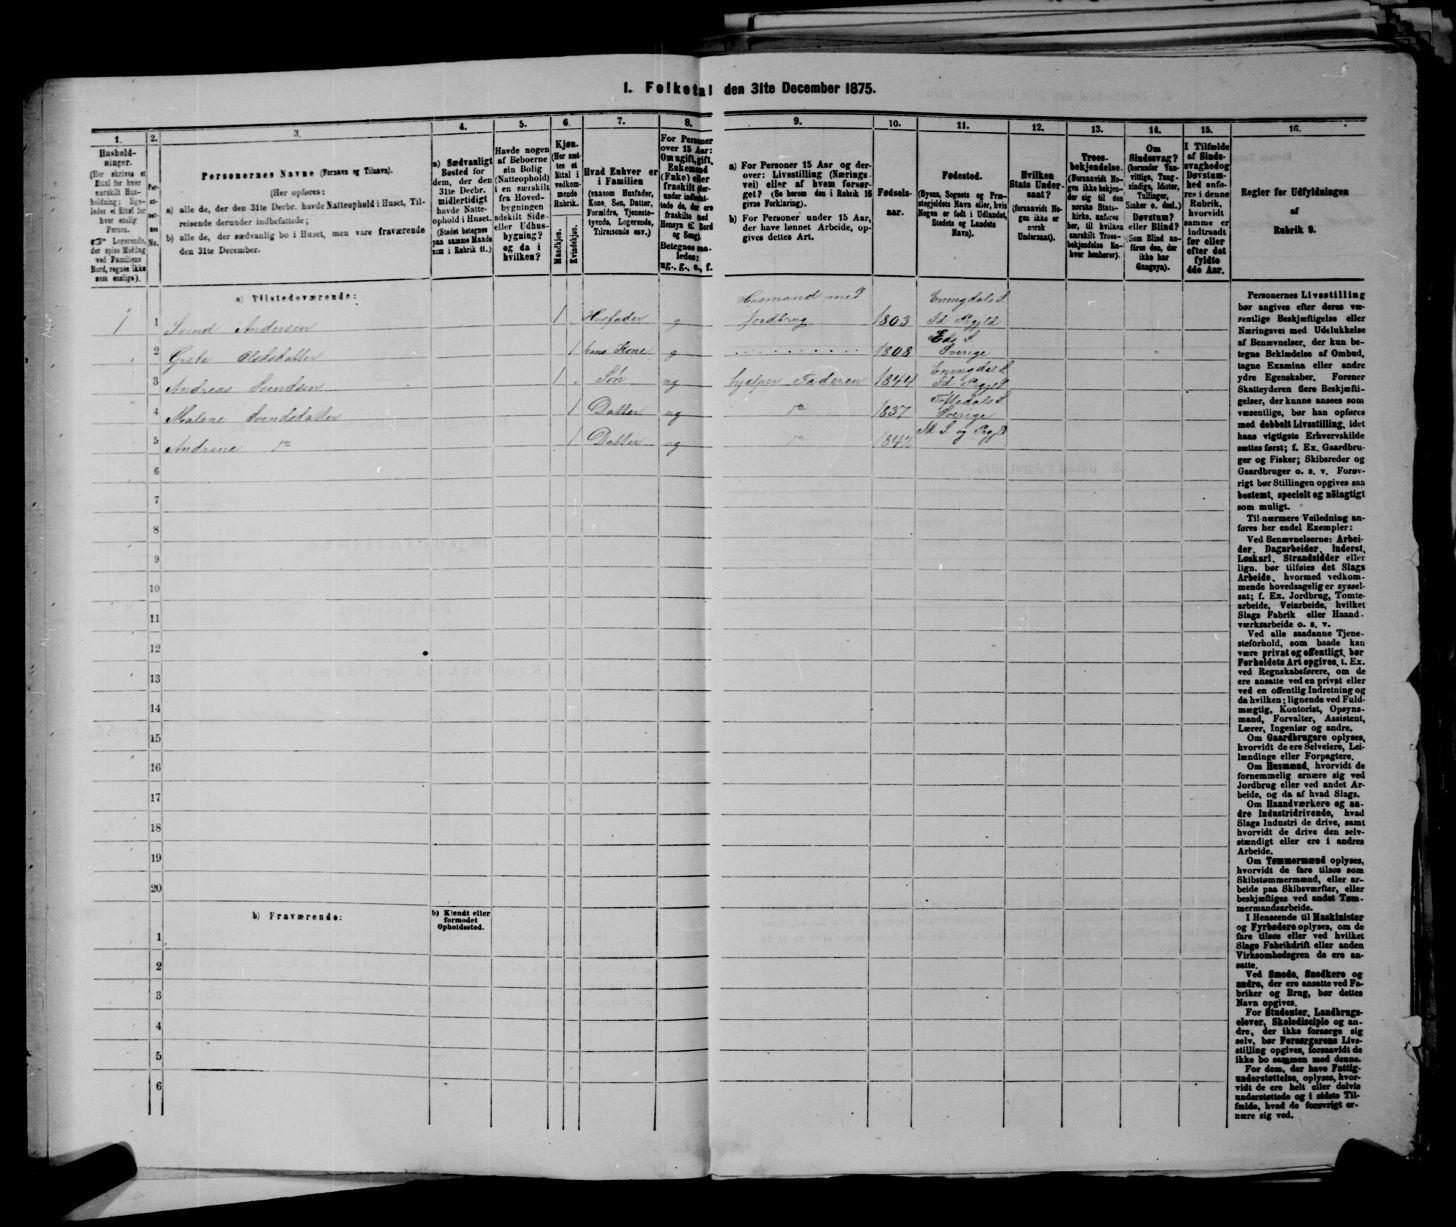 1. Folketal den 31te December 1875.
1.
Hushold-
ninger.
(Her skrives et
Ettal for hver
særskilt Hus-
holdning; lige-
ledes et Ettal for
hver enslig
Person.
Logerende,
der spise Middag
ved Familiens
Bord, regnes ikke
som enslige).
2.
Per-
soner-
nes
No.
3.
Personernes Navne (Fornavn og Tilnavn).
(Her opføres:
a) alle de, der den 31te Decbr. havde Natteophold i Huset, Til-
reisende derunder indbefattede;
b) alle de, der sædvanlig bo i Huset, men vare fraværende
den 31te December.
4.
a) Sædvanligt
Bosted for
dem, der den
31te Decbr.
midlertidigt
havde Natte-
ophold i Huset.
(Stedet betegnes
paa samme Maade
som i Rubrik 11.)
5.
Havde nogen
af Beboerne
sin Bolig
(Natteophold)
i en særskilt
fra Hoved-
bygningen
adskilt Side-
eller Udhus-
bygning?
og da i
hvilken?
6.
Kjøn.
(Her sæt-
tes et
Ettal i
vedkom-
mende
Rubrik.
Mandkjøn.
Kvindekjøn.
7.
Hvad Enhver er
i Familien
(saasom Husfader,
Kone, Søn, Datter,
Forældre, Tjeneste-
tyende, Logerende,
Tilreisende osv.)
8.
For Personer
over 15 Aar:
Om ugift, gift,
Enkemand
(Enke) eller
fraskilt (der-
under indbefat-
tede de, der ere
fraskilte med
Hensyn til Bord
og Seng).
Betegnes saa-
ledes:
ug., g., e., f.
9.
a) For Personer 15 Aar og der-
over: Livsstilling (Nærings-
vei) eller af hvem forsør-
get? (Se herom den i Rubrik 16
givne Forklaring).
b) For Personer under 15 Aar,
der have lønnet Arbeide, op-
gives dettes Art.
10.
Fødsels-
aar.
11.
Fødested.
(Byens, Sognets og Præ-
stegjeldets Navn eller, hvis
Nogen er født i Udlandet,
Stedets og Landets
Navn).
12.
Hvilken
Stats Under-
saat?
(forsaavidt No-
gen ikke er
norsk
Undersaat).
13.
Troes-
bekjendelse.
(Forsaavidt No-
gen ikke bekjen-
der sig til den
norske Stats-
kirke, anføres
her, til hvilken
særskilt Troes-
bekjendelse En-
hver henhører).
14.
Om
Sindssvag?
(herunder Van-
vittige, Tung-
sindige, Idioter,
Tullinger,
Sinker o. desl.)
Døvstum?
eller Blind?
(Som Blind an-
føres den, der
ikke har
Gangsyn).
15.
I Tilfælde
af Sinds-
svaghedog
Døvstum-
hed anfø-
res i denne
Rubrik,
hvorvidt
samme er
indtraadt
før eller
efter det
fyldte
4de Aar.
16.
Regler for Udfyldningen
af
Rubrik 9.
a) Tilstedeværende:
1 1 Svend Andersen 1 Husfader g Huusmand med Jordbrug 1803 Eningdals S. Id Pgjld
2 Grete Olsdatter 1 hans Kone g 1808 Eds S. Sverige
3 Andreas Svendsen 1 Søn ug hjelper Faderen 1844 Eningdal S. Id Pgjld
4 Malene Svendsdatter 1 Datter ug do 1837 Töftedals S. Sverige
5 Andrine do 1 Datter ug do 1842 Id S. og Pgjld
6
7
8
9
10
11
12
13
14
15
16
17
18
19
20
b) Fraværende:
b) Kjendt eller
formodet
Opholdssted.
1
2
3
4
5
6
Personernes Livsstilling
bør angives efter deres væ-
sentlige Beskjæftigelse eller
Næringsvei med Udelukkelse
af Benævnelser, der kun be-
tegne Beklædelse af Ombud,
tagne Examina eller andre
ydre Egenskaber. Forener
Skatteyderen flere Beskjæfti-
gelser, der kunne ansees som
væsentlige, bør han opføres
med dobbelt Livsstilling, idet
hans vigtigste Erhvervskilde
sættes først; f. Ex. Gaardbru-
ger og Fisker; Skibsreder og
Gaardbruger o. s. v. Forøv-
rigt bør Stillingen opgives saa
bestemt, specielt og nöiagtigt
som muligt.
Til nærmere Veiledning an-
føres her endel Exempler:
Ved Benævnelserne: Arbei-
der, Dagarbeider, Inderst,
Løskarl, Strandsidder eller
lign. bør tilføies det Slags
Arbeide, hvormed vedkom-
mende hovedsagelig er syssel-
sat; f. Ex. Jordbrug, Tomte-
arbeide, Veiarbeide, hvilket
Slags Fabrik eller Haand-
værksarbeide o. s. v.
Ved alle saadanne Tjene-
steforhold, som baade kan
være privat og offentligt, bør
Forholdets Art opgives, t. Ex.
ved Regnskabsførere, om de
ere ansatte ved en privat eller
ved en offentlig Indretning og
da hvilken; lignende ved Fuld-
mægtig, Kontorist, Opsyns-
mand, Forvalter, Assistent,
Lærer, Ingeniør og andre.
Om Gaardbrugere oplyses,
hvorvidt de ere Selveiere, Lei-
lændinge eller Forpagtere.
Om Husmænd, hvorvidt de
fornemmelig ernære sig ved
Jordbrug eller ved andet Ar-
beide, og da af hvad Slags.
Om Haandværkere og an-
dre Industridrivende, hvad
Slags Industri de drive, samt
hvorvidt de drive den selv-
stændigt eller ere i andres
Arbeide.
Om Tømmermænd oplyses,
hvorvidt de fare tilsøs som
Skibstømmermænd, eller ar-
beide paa Skibsværfter, eller
beskjæftiges ved andet Tøm-
mermandsarbeide.
I Henseende til Maskinister
og Fyrbødere oplyses, om de
fare tilsøs eller ved hvilket
Slags Fabrikdrift eller anden
Virksomhedsgren de ere an-
satte.
Ved Smede, Snedkere og
andre, der ere ansatte ved Fa-
briker og Brug, bør dettes
Navn opgives.
For Studenter, Landbrugs-
elever, Skoledisciple og an-
dre, der ikke forsørge sig
selv, bør Forsørgerens Livs-
stilling opgives, forsaavidt de
ikke bo sammen med denne.
For dem, der have Fattig-
understøttelse, oplyses, hvor-
vidt de ere helt eller delvis
understøttede og i sidste Til-
fælde, hvad de forøvrigt er-
nære sig ved.